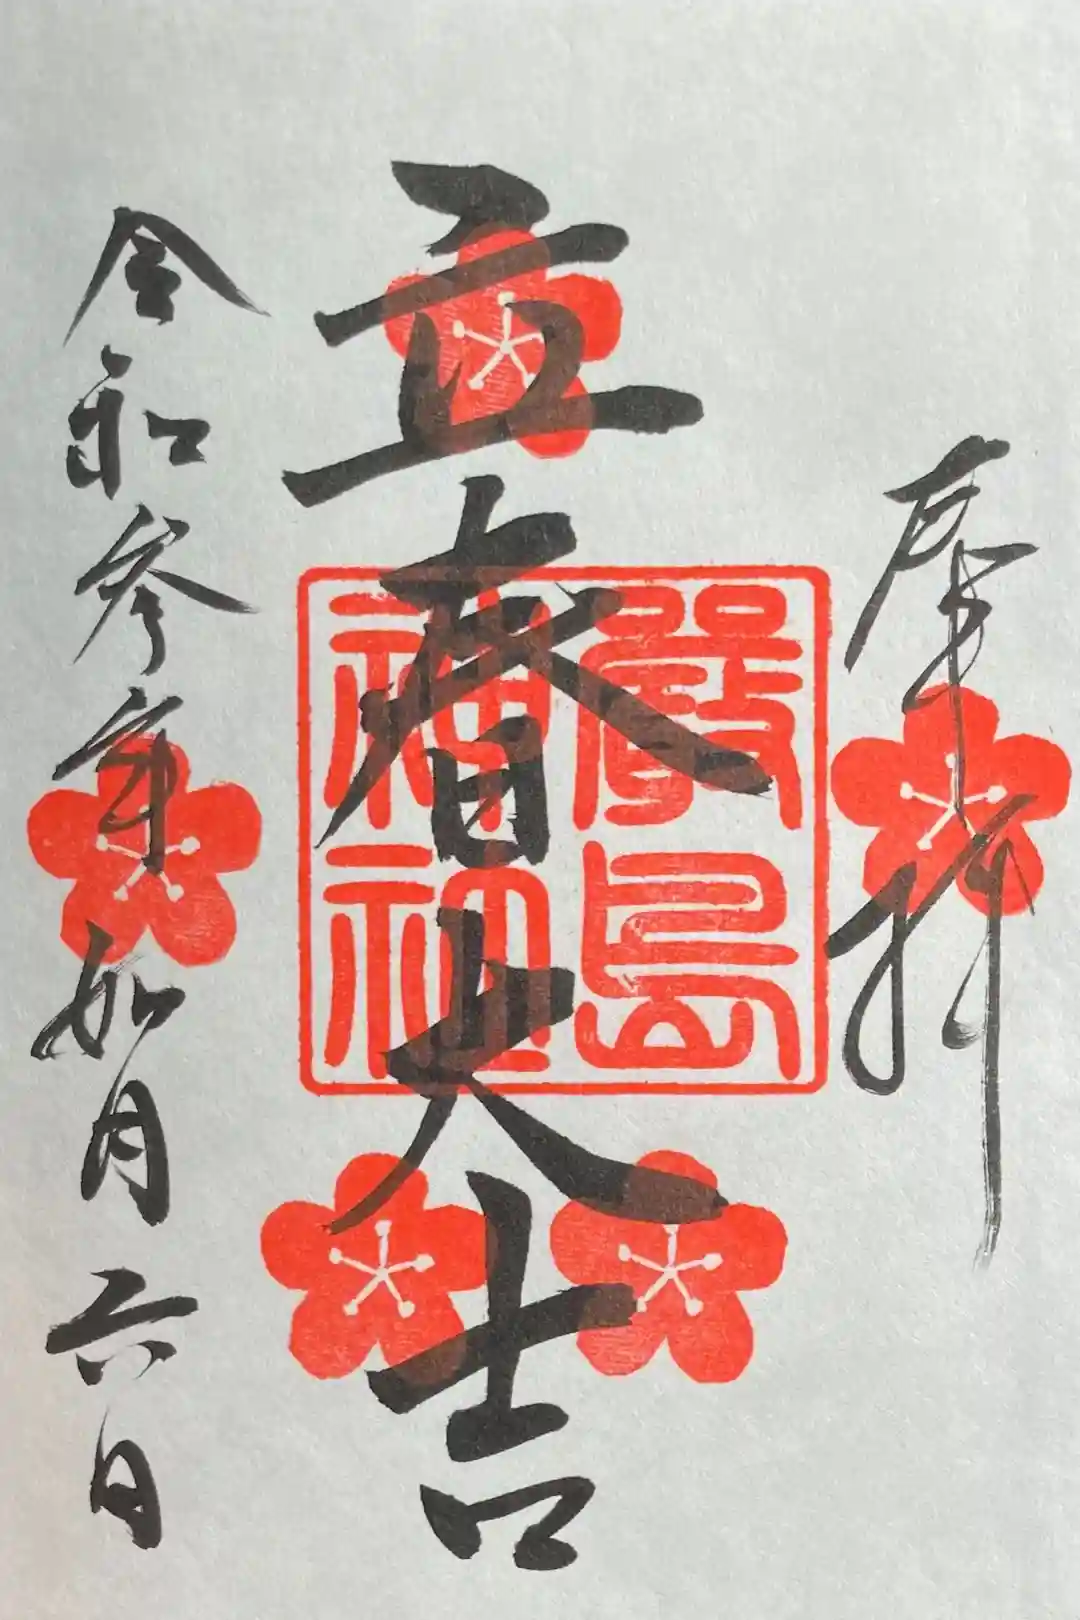 奉拝
立春大吉
嚴島
神社
令和参年如月六日